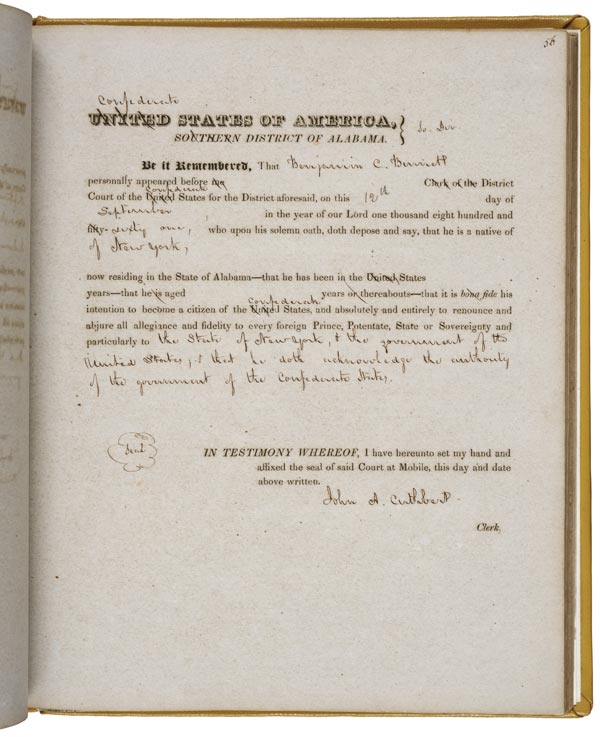 56
Confederate
UNITED STATES OF AMERICA,
SOUTHERN DISTRICT OF ALABAMA. } So. Div.
Be it Remembered, That Benjamin C. Burnett
personally appeared before me Clerk of the District
Confederate
Court of the United States for the District aforesaid, on this 12th day of
September, in the year of our Lord one thousand eight hundred and
fifty-sixty one, who upon his solemn oath, doth depose and say, that he is a native of
of New York,
now residing in the State of Alabama—that he has been in the United States
years—that he is aged years or thereabouts—that it is bona fide his
Confederate
intention to become a citizen of the United States, and absolutely and entirely to renounce and
abjure all allegiance and fidelity to every foreign Prince, Potentate, State or Sovereignty and
particularly to the State of New York, & the government of the
United States, & that he doth acknowledge the authority
of the government of the Confederate States.
Seal
IN TESTIMONY WHEREOF, I have hereunto set my hand and
affixed the seal of said Court at Mobile, this day and date
above written.
John A. Cuthbert
Clerk,